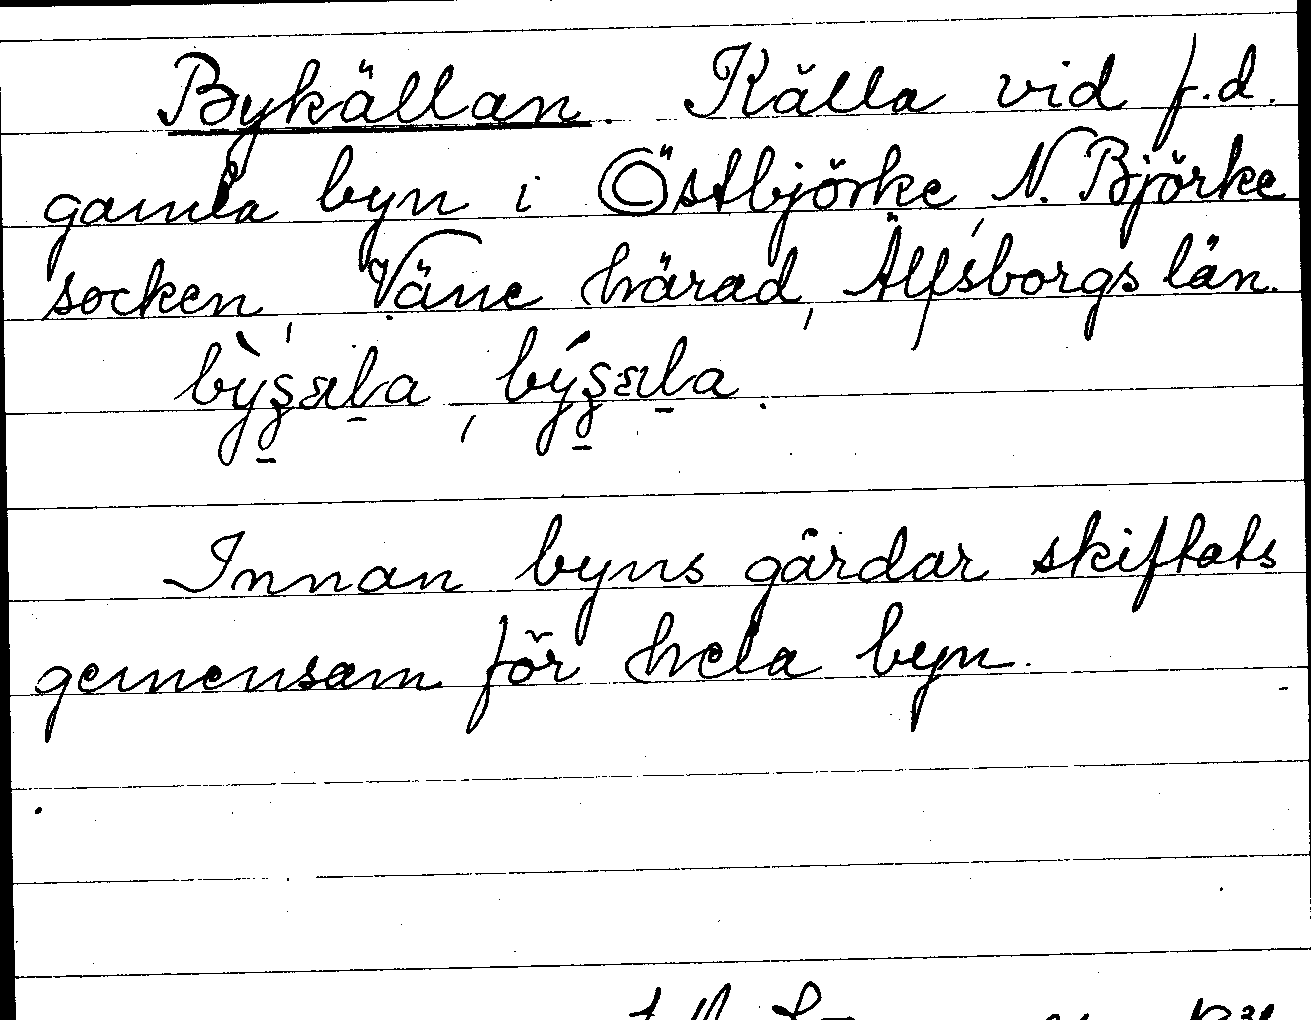 Bykällan. Källa vid f.d.
gamla byn i Östbjörke, N. Björke
socken, Väne härad, Älfsborgs län.
Innan byns gårdar skiftats
gemensam för hela byn.